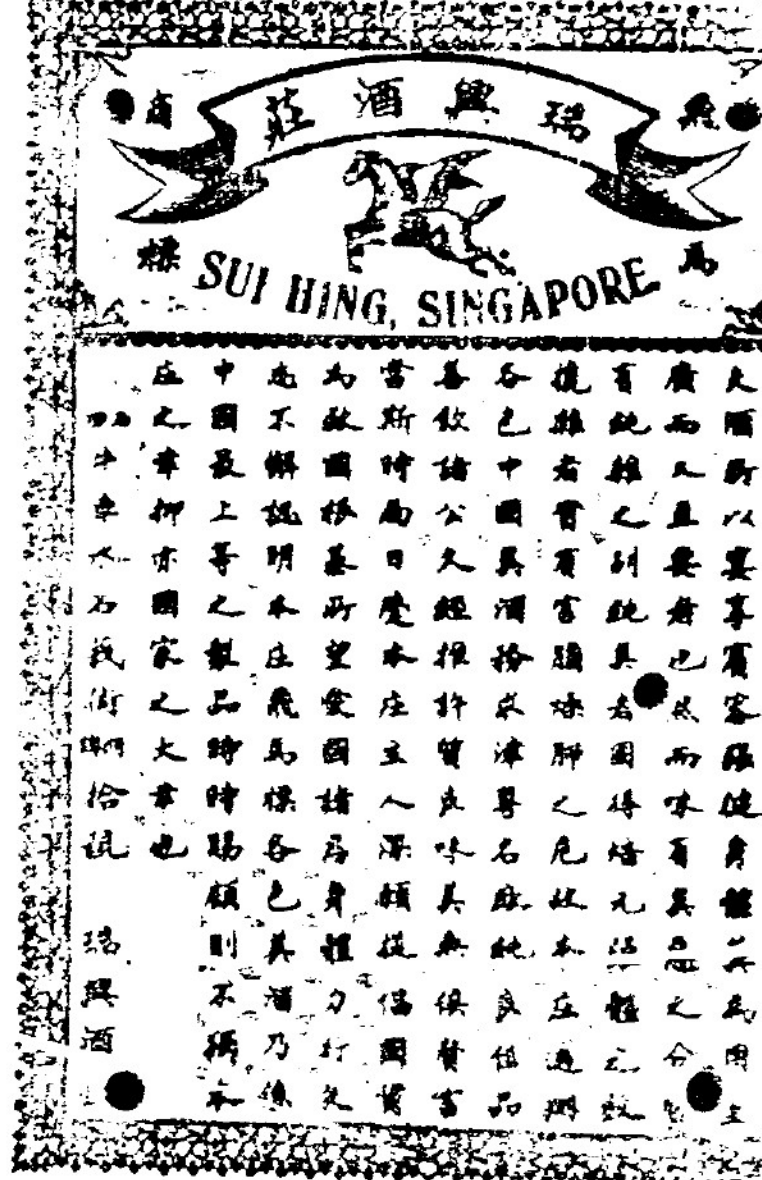 瑞興酒莊
飛馬
商標
SUI HING, SINGAPORE
夫酒所以宴享賓客強健身體其為用至
廣而又且要者也然而味有異之分
有純雜之別純真者固得培元活髓之效
攙雜者實有害腦燥肺之危故本庄選辦
各色中國美酒務求津尋名廠純良佳品
善飲諸公久經推許質良味美無俱贅言
當斯時局日蹙本庄主人深願提倡國貨
為救國根基所望愛國諸君身體力行久
遠不懈認明本庄飛馬標各色美酒乃係
中國最上等之製品時時賜顧則不獨本
庄之幸抑亦國家之大幸也
叻牛車水石莪街門牌拾號 瑞興酒